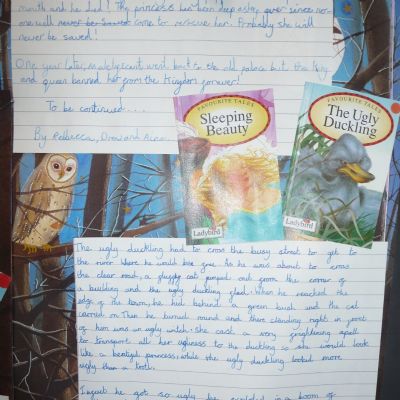 month and he died! The princess had been deep asleep ever since nor-
one will never be saved come to rescue her. Probably she will
never be saved!
One year later, maleficent went back to the old palace but the King
and queen banned her from the Kingdom forever!
To be continued . . .
By Rebecca, and
FAVOURITE TALES
Sleeping
Beauty
Ladybird
FAVOURITE TALES
The Ugly
Duckling
Ladybird
The ugly duckling had to cross the busy street to get to
the river where he would be free. As he was about to cross
the clear road, a gluggy cat jumped out from the corner of
a building and the ugly duckling fled. When he reached the
edge of the town, he hid behind a green bush and the cat
carried on. Then he turned round and there standing right in front
of him was an ugly witch. She cast a very frightening spell
to transport all her ugliness to the duckling so she would look
like a beatiful princess, while the ugly duckling looked more
ugly than a
Infact he got so ugly he exploded in a boom of